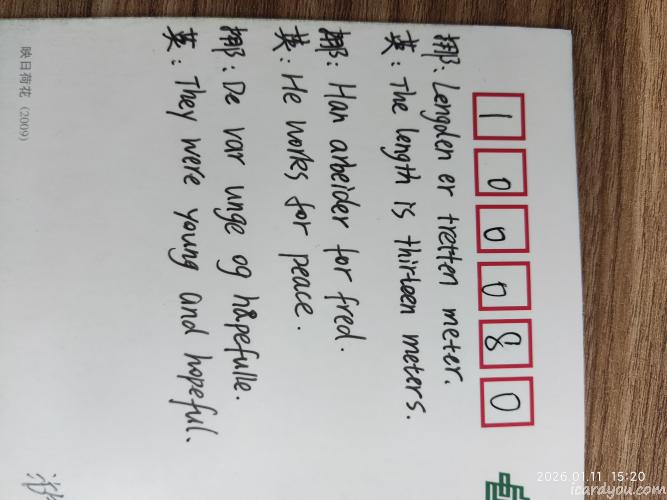 100080
挪: Lengden er tretten meter.
英: The length is thirteen meters.
挪: Han arbeider for fred.
英: He works for peace.
挪: De var unge og håpefulle.
英: They were young and hopeful.
映日荷花 (2009)
2026.01.11 15:20
icardyou.com